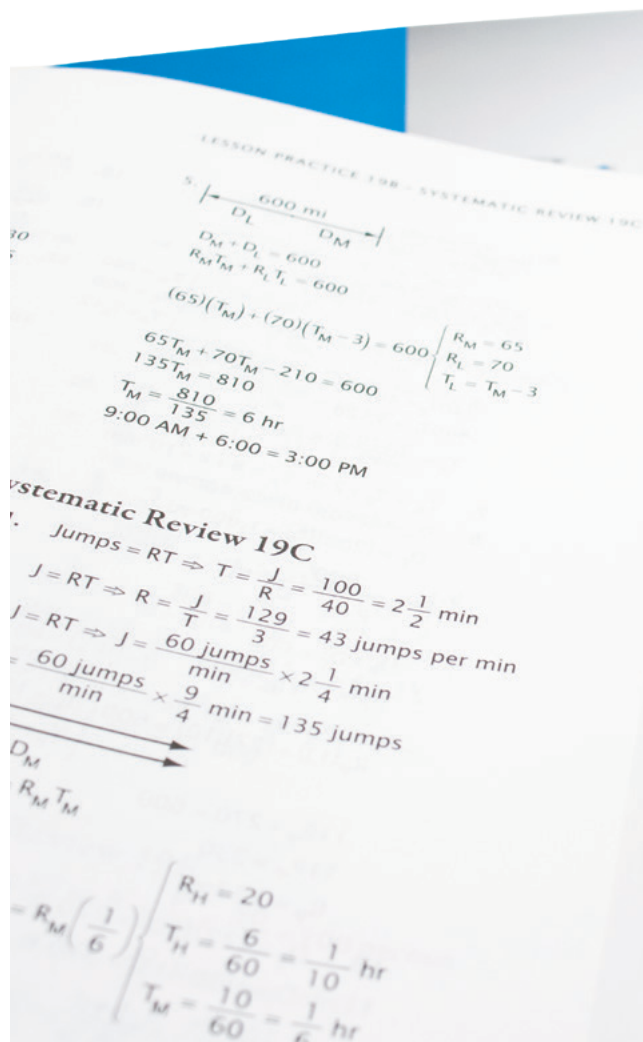 LESSON PRACTICE 19B - SYSTEMATIC REVIEW 19C
5.
600 mi
D_L D_M
D_M + D_L = 600
R_M T_M + R_L T_L = 600
(65)(T_M) + (70)(T_M − 3) = 600 { R_M = 65
R_L = 70
T_L = T_M − 3
65T_M + 70T_M − 210 = 600
135T_M = 810
T_M = 810/135 = 6 hr
9:00 AM + 6:00 = 3:00 PM
30
ystematic Review 19C
Jumps = RT ⇒ T = J/R = 100/40 = 2 1/2 min
J = RT ⇒ R = J/T = 129/3 = 43 jumps per min
J = RT ⇒ J = 60 jumps/min × 2 1/4 min
= 60 jumps/min × 9/4 min = 135 jumps
D_M
R_M T_M
= R_M (1/6) { R_H = 20
T_H = 6/60 = 1/10 hr
T_M = 10/60 = 1/6 hr